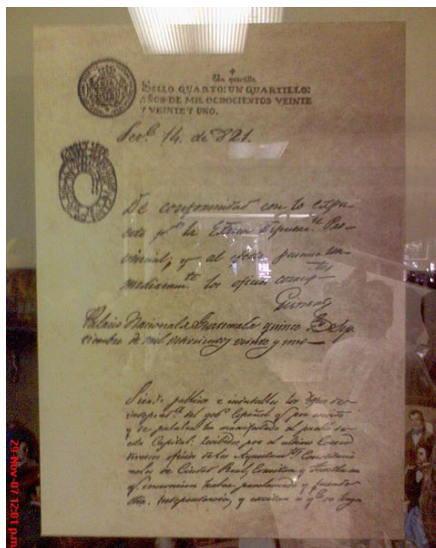 Un quartillo
SELLO QUARTO: UN QUARTILLO:
AÑOS DE MIL OCHOCIENTOS VEINTE
Y VEINTE Y UNO.
14. de 821.
De conformidad con lo expu
esto pr. la Excma Diputn. Pro-
vincial, y al efecto
los oficios
Palacio Nacional de Guatemala quince de Sep
tiembre de mil ochocientos veinte y uno
Siendo publicos e indudables los deseos de
independa. del gobo. Español q. por escrito
y de palabra ha manifestado el pueblo de
esta Capital: recibidos por el ultimo Correo
diversos oficios de los Ayuntamtos. Constitucio
nales de Ciudad Real, Comitan y Tuxtla en
q. comunican haber proclamado y jurado
dha. Independencia, y excitan a q. se haga
29-Nov-07 12:01 pm